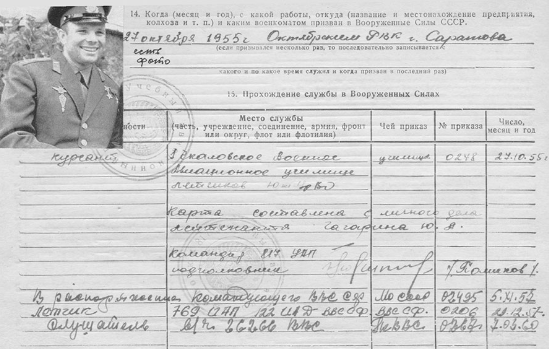 14. Когда (месяц и год), с какой работы, откуда (название и местонахождение предприятия,
колхоза и т. п.) и каким военкоматом призван в Вооруженные Силы СССР.
27 октября 1955 г. Октябрьским РВК г. Саратова
(если призывался несколько раз, то последовательно записывается,
есть
фото
какого и по какое время служил и когда призван в последний раз)
15. Прохождение службы в Вооруженных Силах
Место службы
(часть, учреждение, соединение, армия, фронт
или округ, флот или флотилия)
Чей приказ
№ приказа
Число,
месяц и год
курсант
Чкаловское Военное училища 0248 27.10.55 г
авиационное училище
летчиков
Карта составлена с личного дела
лейтенанта Гагарина Ю. А.
Командир 817 УАП
подполковник
В распоряжение Командующего ВВС СФ 02495 5.XI.57
Летчик 769 ИАП 122 ИАД ВВС СФ. ВВС СФ. 0206
Слушатель в/ч 26266 ВВС 7.03.60